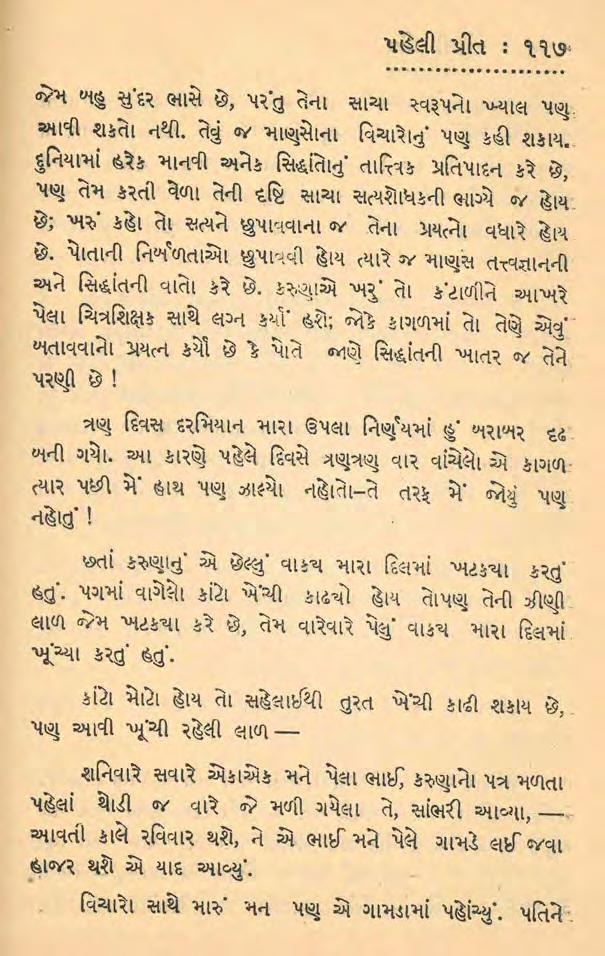 પહેલી પ્રીત : ૧૧૭
જેમ બહુ સુંદર ભાસે છે, પરંતુ તેના સાચા સ્વરૂપનો ખ્યાલ પણ
આવી શકતો નથી. તેવું જ માણસોના વિચારોનું પણ કહી શકાય.
દુનિયામાં હરેક માનવી અનેક સિદ્ધાંતોનું તાત્ત્વિક પ્રતિપાદન કરે છે,
પણ તેમ કરતી વેળા તેની દૃષ્ટિ સાચા સત્યશોધકની ભાગ્યે જ હોય
છે; ખરું કહો તો સત્યને છુપાવવાના જ તેના પ્રયત્નો વધારે હોય
છે. પોતાની નિર્બળતાઓ છુપાવવી હોય ત્યારે જ માણસ તત્ત્વજ્ઞાનની
અને સિદ્ધાંતની વાતો કરે છે. કરુણાએ ખરું તો કંટાળીને આખરે
પેલા ચિત્રશિક્ષક સાથે લગ્ન કર્યાં હશે; જોકે કાગળમાં તો તેણે એવું
બતાવવાનો પ્રયત્ન કર્યો છે કે પોતે જાણે સિદ્ધાંતની ખાતર જ તેને
પરણી છે !
ત્રણ દિવસ દરમિયાન મારા ઉપલા નિર્ણયમાં હું બરાબર દૃઢ
બની ગયો. આ કારણે પહેલે દિવસે ત્રણત્રણ વાર વાંચેલો એ કાગળ
ત્યાર પછી મેં હાથ પણ ઝાલ્યો નહોતો–તે તરફ મેં જોયું પણ
નહોતું !
છતાં કરુણાનું એ છેલ્લું વાક્ય મારા દિલમાં ખટક્યા કરતું
હતું. પગમાં વાગેલો કાંટો ખેંચી કાઢ્યો હોય તોપણ તેની ઝીણી
લાળ જેમ ખટક્યા કરે છે, તેમ વારેવારે પેલું વાક્ય મારા દિલમાં
ખૂંચ્યા કરતું હતું.
કાંટો મોટો હોય તો સહેલાઈથી તુરત ખેંચી કાઢી શકાય છે,
પણ આવી ખૂંચી રહેલી લાળ —
શનિવારે સવારે એકાએક મને પેલા ભાઈ, કરુણાનો પત્ર મળતા
પહેલાં થોડી જ વારે જે મળી ગયેલા તે, સાંભરી આવ્યા, —
આવતી કાલે રવિવાર થશે, ને એ ભાઈ મને પેલે ગામડે લઈ જવા
હાજર થશે એ યાદ આવ્યું.
વિચારો સાથે મારું મન પણ એ ગામડામાં પહોંચ્યું. પતિને